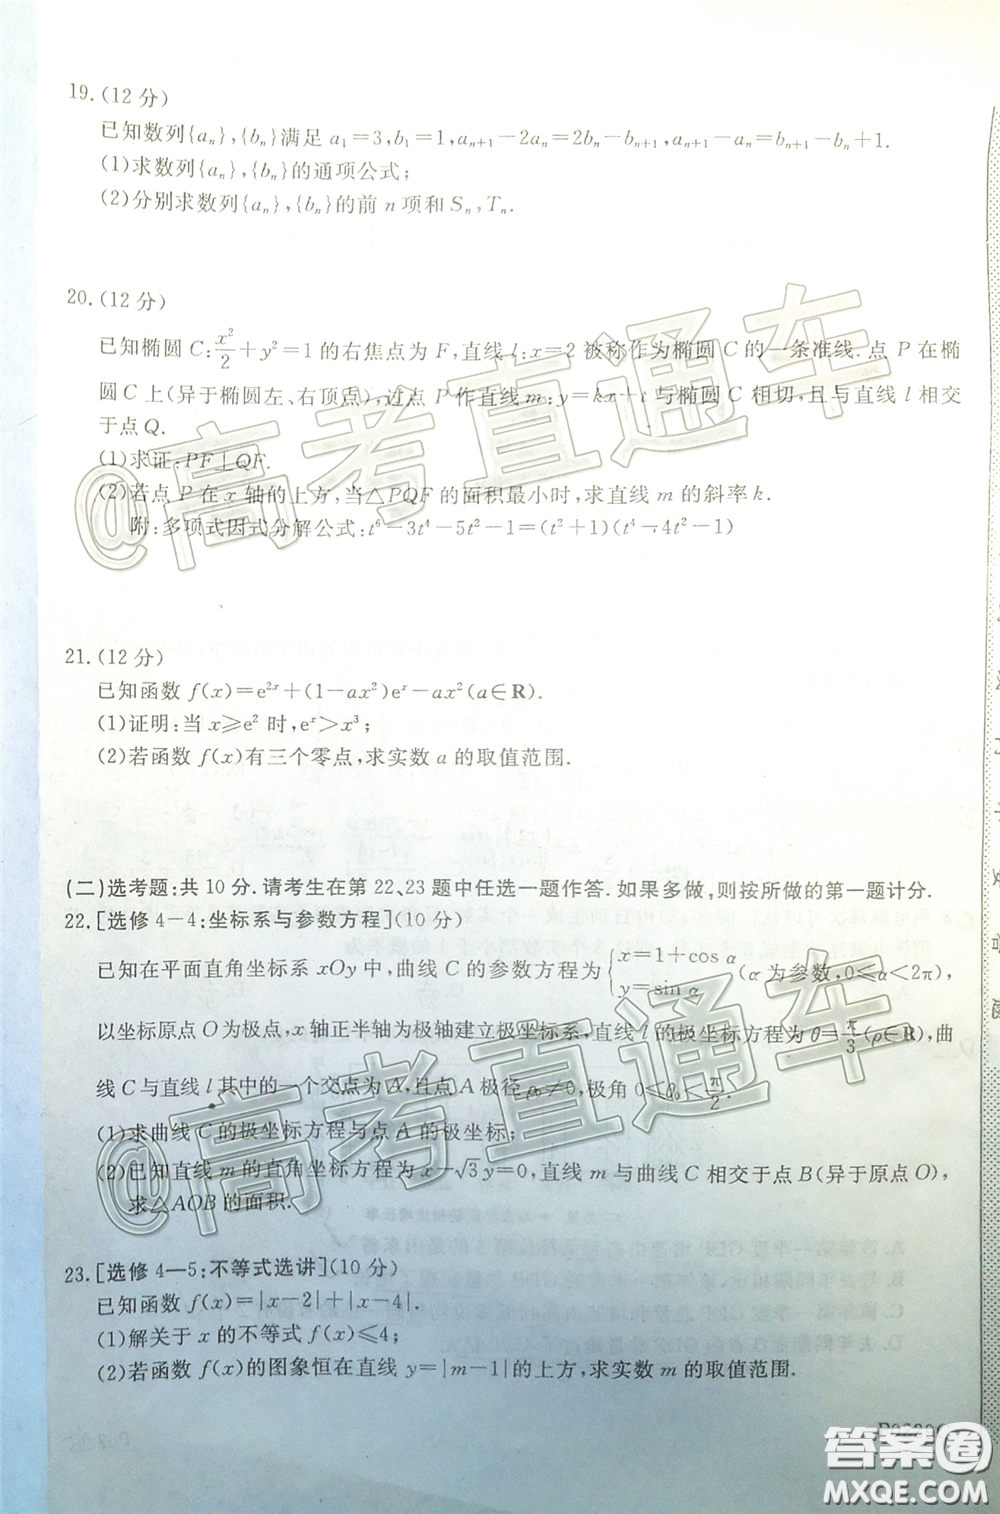 19.(12分)
已知数列{aₙ},{bₙ}满足 a₁=3,b₁=1,aₙ₊₁-2aₙ=2bₙ-bₙ₊₁,aₙ₊₁-aₙ=bₙ₊₁-bₙ+1.
(1)求数列{aₙ},{bₙ}的通项公式;
(2)分别求数列{aₙ},{bₙ}的前 n 项和 Sₙ,Tₙ.
20.(12分)
已知椭圆 C:x²/2+y²=1的右焦点为 F,直线 l:x=2 被称作为椭圆 C 的一条准线.点 P 在椭
圆 C 上(异于椭圆左、右顶点),过点 P 作直线 m:y=kx+t 与椭圆 C 相切,且与直线 l 相交
于点Q.
(1)求证:PF⊥QF.
(2)若点 P 在 x 轴的上方,当△PQF 的面积最小时,求直线 m 的斜率 k.
附:多项式因式分解公式:t⁶-3t⁴-5t²-1=(t²+1)(t⁴-4t²-1)
21.(12分)
已知函数 f(x)=e²ˣ+(1-ax²)eˣ-ax²(a∈R).
(1)证明:当 x≥e² 时,eˣ>x³;
(2)若函数 f(x)有三个零点,求实数 a 的取值范围.
(二)选考题:共10分.请考生在第22、23题中任选一题作答.如果多做,则按所做的第一题计分.
22.[选修4-4:坐标系与参数方程](10分)
已知在平面直角坐标系 xOy 中,曲线 C 的参数方程为{x=1+cos α y=sin α(α 为参数,0≤α<2π),
以坐标原点 O 为极点,x 轴正半轴为极轴建立极坐标系,直线 l 的极坐标方程为 θ=π/3(ρ∈R),曲
线 C 与直线 l 其中的一个交点为 A,且点 A 极径 ρ₀≠0,极角 0≤θ₀<π/2.
(1)求曲线 C 的极坐标方程与点 A 的极坐标;
(2)已知直线 m 的直角坐标方程为 x-√3y=0,直线 m 与曲线 C 相交于点 B(异于原点 O),
求△AOB 的面积.
23.[选修4—5:不等式选讲](10分)
已知函数 f(x)=|x-2|+|x-4|.
(1)解关于 x 的不等式 f(x)≤4;
(2)若函数 f(x)的图象恒在直线 y=|m-1|的上方,求实数 m 的取值范围.
@高考直通车
@高考直通车
答案圈
MXQE.COM